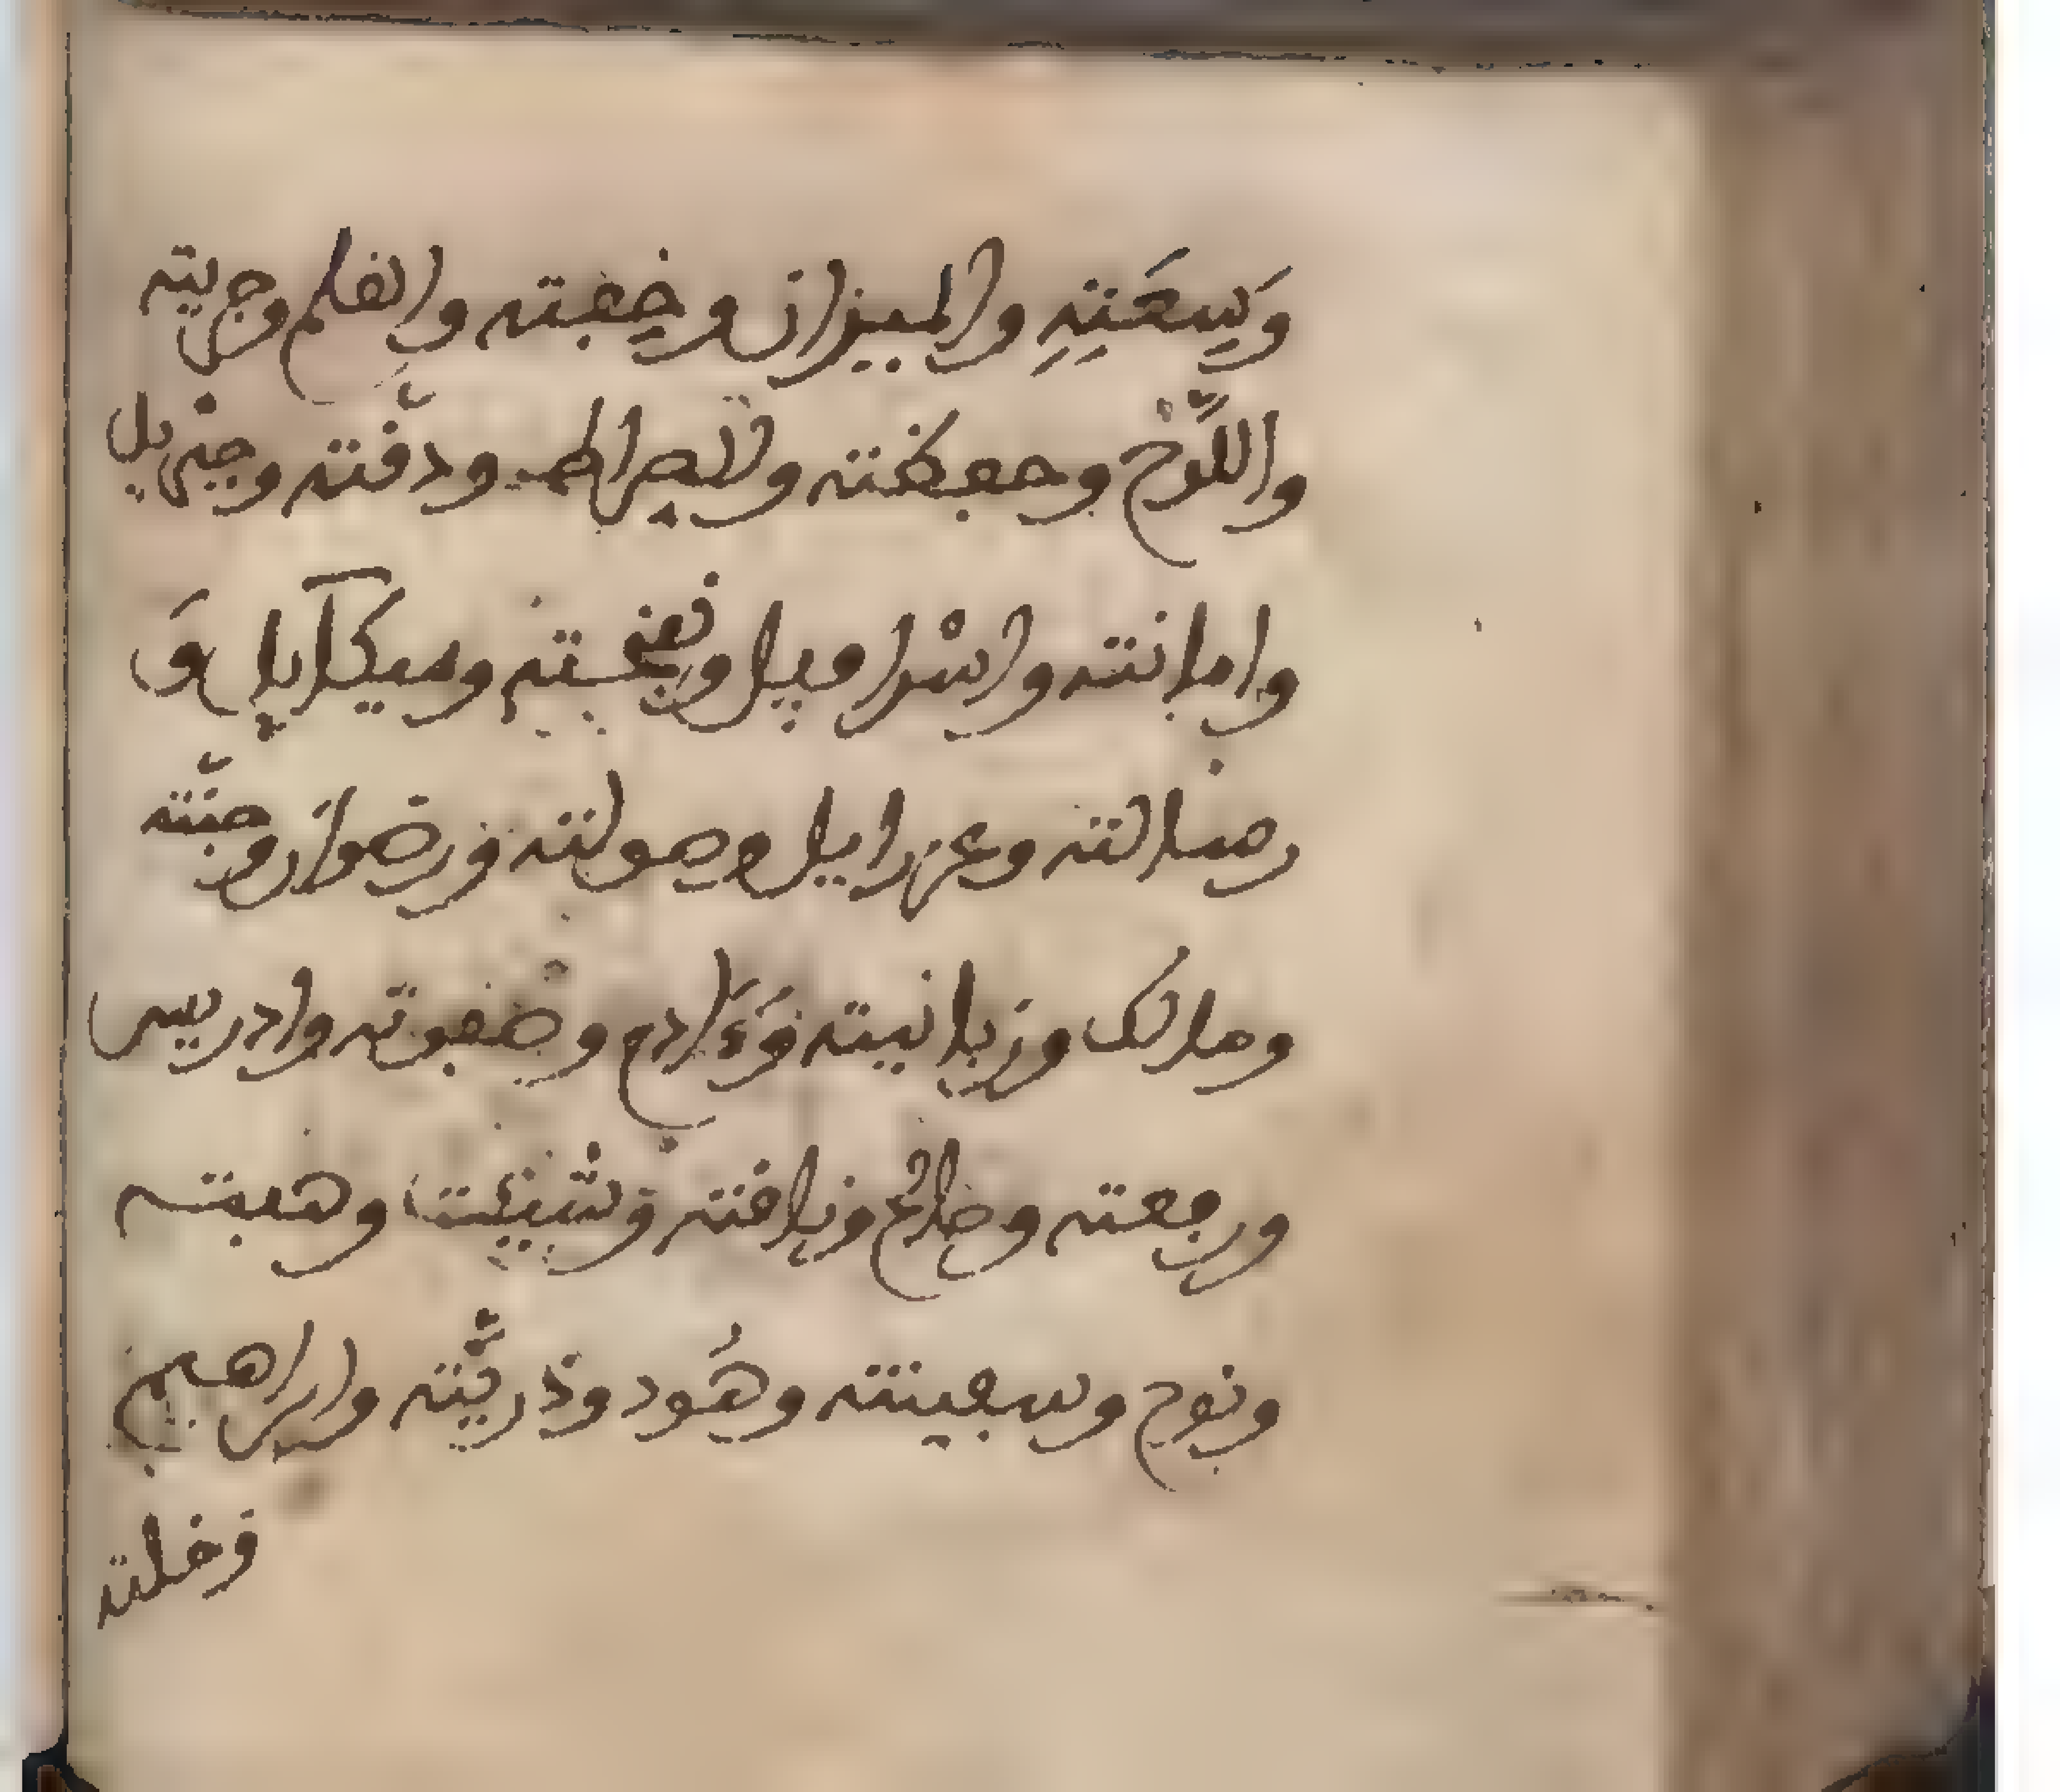 وَسِعَتِهِ والميزان وخِفته والقلم وجريته
واللَّوْح وحفظته والصراط ودقَّته وجبريل
وامانته واسْرافيل ونفخته وميكآيل وَ
رسالته وعزرايل وصولته ورضوان وجنَّته
ومالك وزبانيته وَءَادم وصفوته وادريس
ورفعته وصالح وناقته وشيث وهبته
ونوح وسفينته وهُود وذريَّته وابراهيم
وخلته